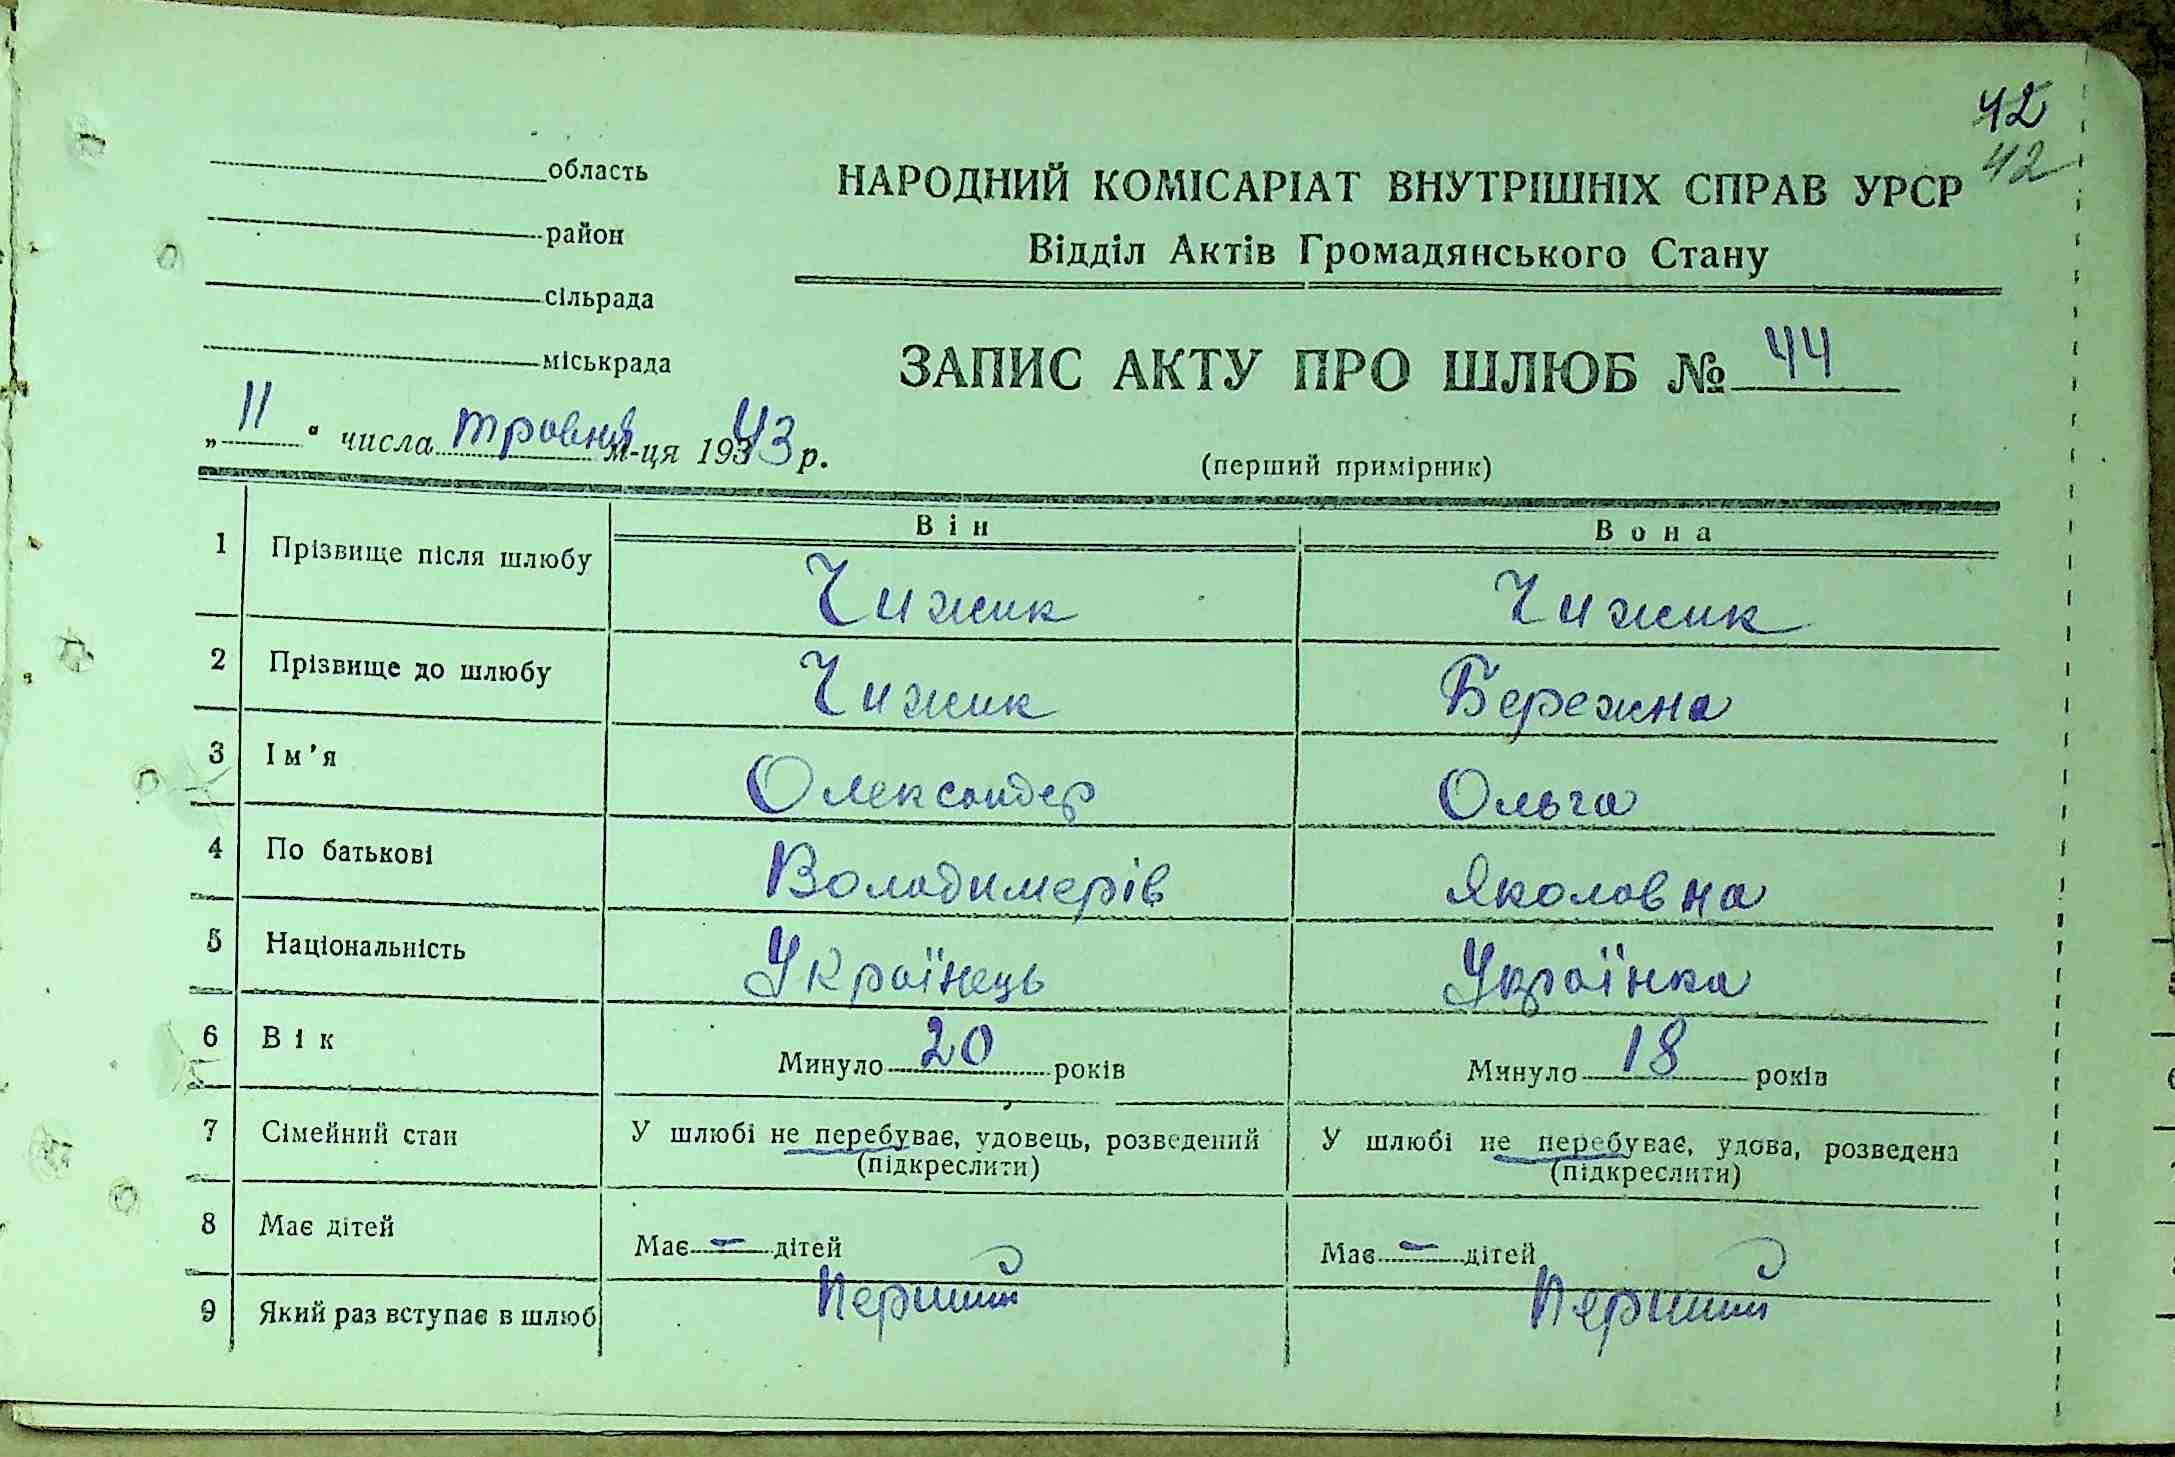 42
42
область
район
сільрада
міськрада
НАРОДНИЙ КОМІСАРІАТ ВНУТРІШНІХ СПРАВ УРСР
Відділ Актів Громадянського Стану
ЗАПИС АКТУ ПРО ШЛЮБ № 44
„11“ числа травня м-ця 1943 р.
(перший примірник)
Він Вона
1 Прізвище після шлюбу Чижик Чижик
2 Прізвище до шлюбу Чижик Бережна
3 Ім'я Олександер Ольга
4 По батькові Володимерів Яколовна
5 Національність Українець Українка
6 Вік Минуло 20 років Минуло 18 років
7 Сімейний стан У шлюбі не перебуває, удовець, розведений У шлюбі не перебуває, удова, розведена
(підкреслити) (підкреслити)
8 Має дітей Має - дітей Має - дітей
9 Який раз вступає в шлюб Перший Перший